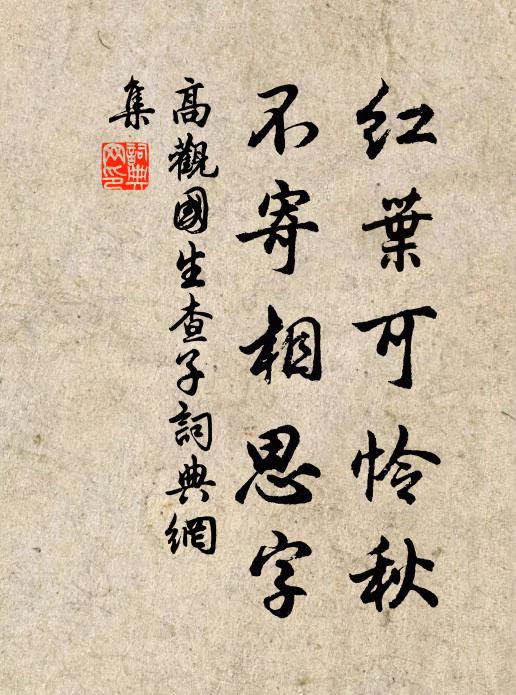 红葉可怜秋
不寄相思字
高觀國生查子詞典網
集
詞典
网印